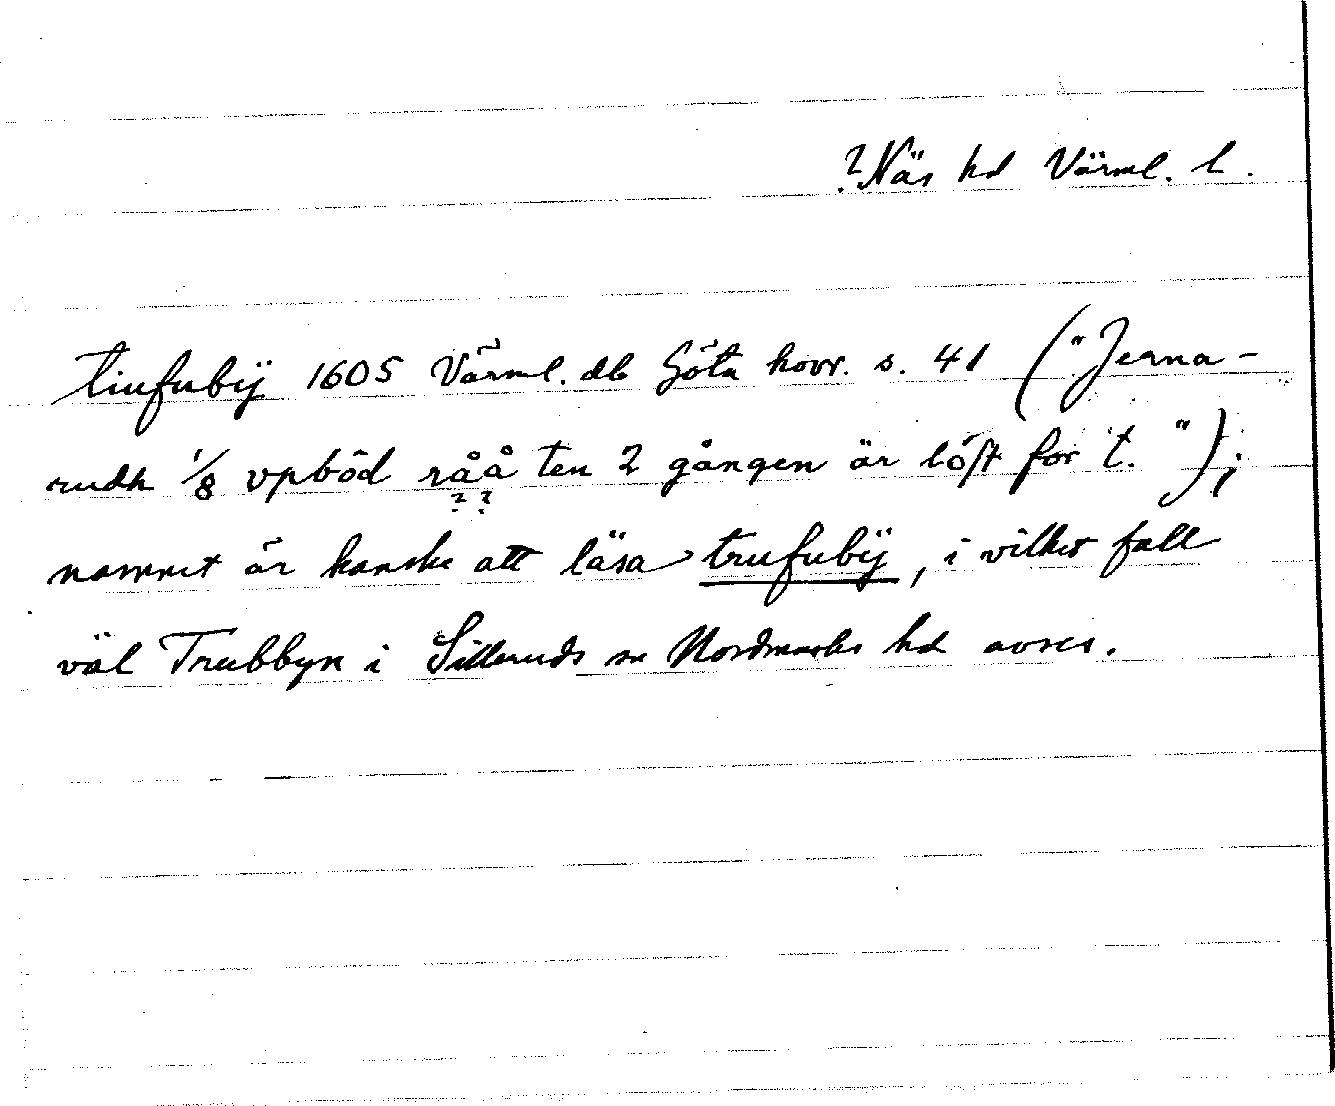 ? Näs hd Värml. l.
tiufubÿ 1605 Värml. db Göta hovr. s. 41 ("Jerna-
rudh 1/8 vpböd råå ten 2 gången är löft for t.");
? ?
namnet är kanske att läsa trufubÿ, i vilket fall
väl Trubbyn i Silleruds sn Nordmarks hd avses.